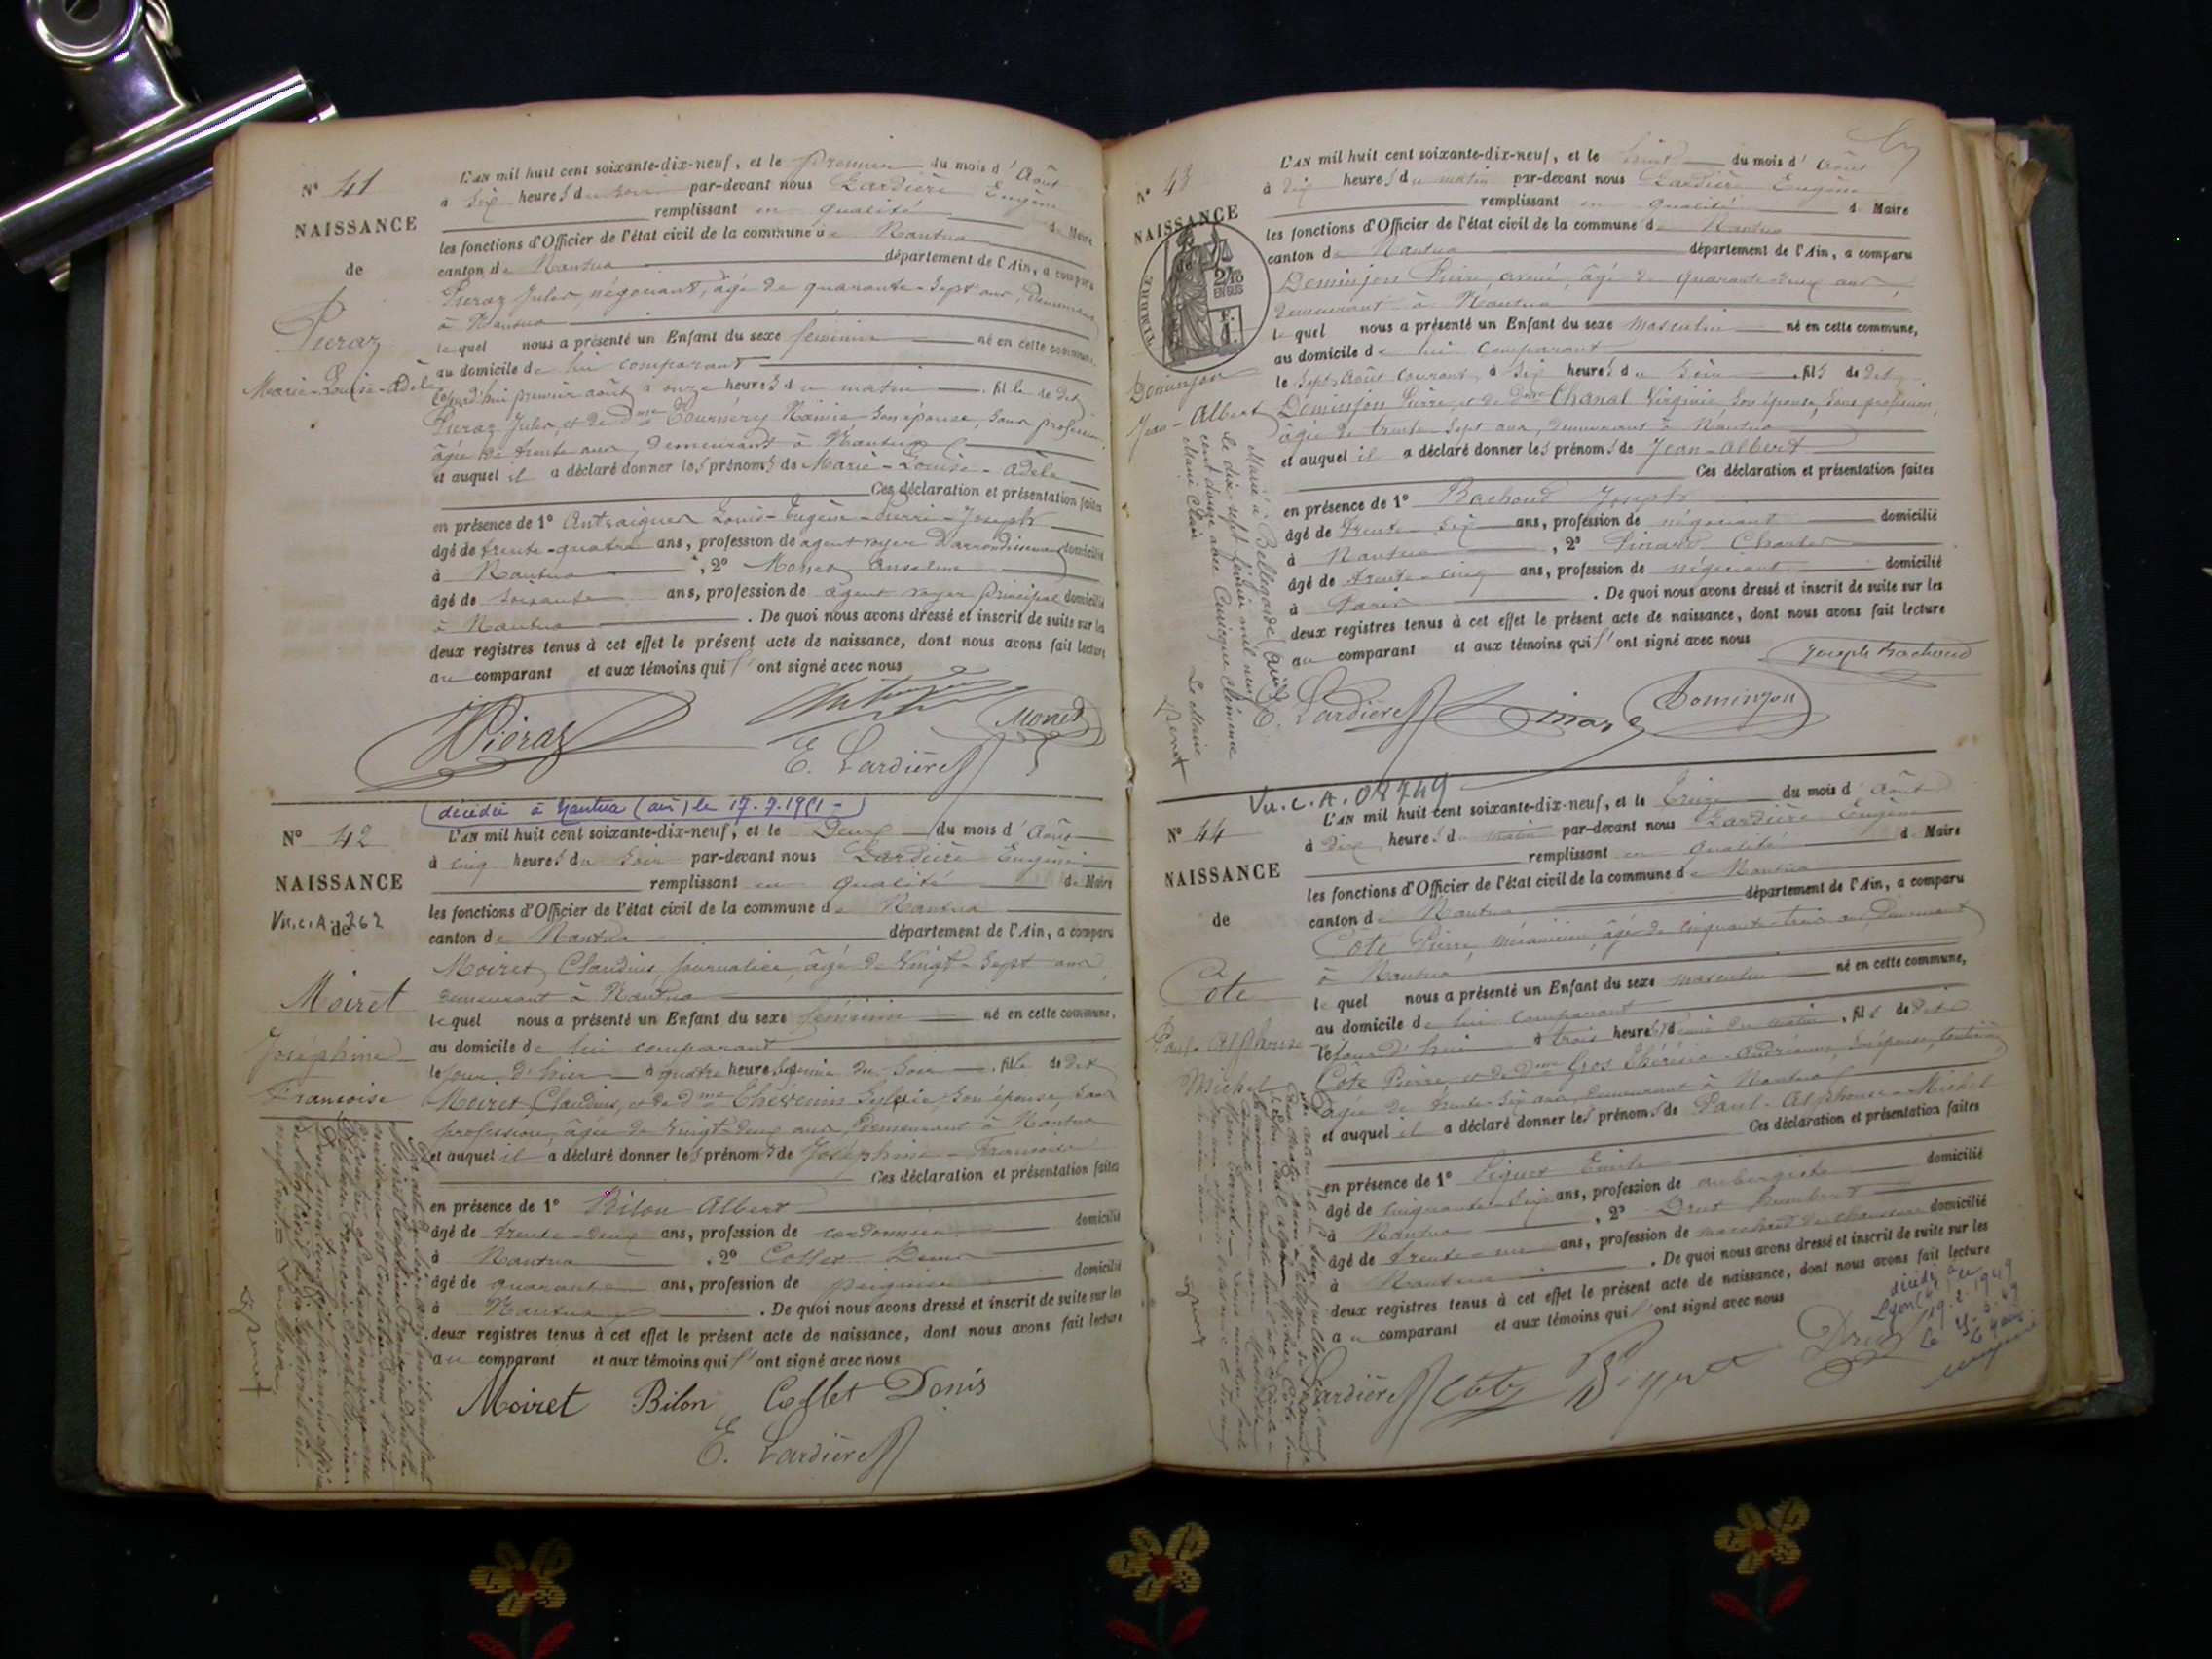 N° 41
NAISSANCE
de
Pieraz
Marie-Louise-Adèle
L'AN mil huit cent soixante-dix-neuf, et le premier du mois d'Août
à six heures du soir par-devant nous Lardière Eugène
remplissant en qualité de Maire
les fonctions d'Officier de l'état civil de la commune de Nantua
canton de Nantua département de l'Ain, a comparu
Pieraz Jules, négociant, âgé de quarante-sept ans, demeurant
à Nantua
lequel nous a présenté un Enfant du sexe féminin né en cette commune,
au domicile de lui comparant
aujourd'hui premier août à onze heures du matin, fille de dit
Pieraz Jules, et de dme Mainie, son épouse, sans profession,
âgée de trente ans, demeurant à Nantua
et auquel il a déclaré donner les prénoms de Marie-Louise-Adèle
Ces déclaration et présentation faites
en présence de 1° Antraigues Louis-Eugène-Pierre-Joseph
âgé de trente-quatre ans, profession de agent voyer d'arrondissement domicilié
à Nantua, 2° Monet Anselme
âgé de soixante ans, profession de agent voyer principal domicilié
à Nantua. De quoi nous avons dressé et inscrit de suite sur les
deux registres tenus à cet effet le présent acte de naissance, dont nous avons fait lecture
au comparant et aux témoins qui l'ont signé avec nous
Pieraz
Monet
E. Lardière
décédée à Nantua (ain) le 17.7.1961 -
N° 42
NAISSANCE
de
Vu.c.A. 262
Moiret
Joséphine
Françoise
L'AN mil huit cent soixante-dix-neuf, et le Deux du mois d'Août
à cinq heures du soir par-devant nous Lardière Eugène
remplissant en qualité de Maire
les fonctions d'Officier de l'état civil de la commune de Nantua
canton de Nantua département de l'Ain, a comparu
Moiret Claudius, journalier, âgé de vingt-sept ans
demeurant à Nantua
lequel nous a présenté un Enfant du sexe féminin né en cette commune,
au domicile de lui comparant
le jour d'hier à quatre heures demie du soir, fille de dit
Moiret Claudius, et de dme Thévenin Sylvie, son épouse, sans
profession, âgée de vingt-deux ans, demeurant à Nantua
et auquel il a déclaré donner les prénoms de Joséphine-Françoise
Ces déclaration et présentation faites
en présence de 1° Bilon Albert
âgé de trente-deux ans, profession de cordonnier domicilié
à Nantua, 2° Collet Denis
âgé de quarante ans, profession de peignier domicilié
à Nantua. De quoi nous avons dressé et inscrit de suite sur les
deux registres tenus à cet effet le présent acte de naissance, dont nous avons fait lecture
au comparant et aux témoins qui l'ont signé avec nous
Moiret Bilon Collet Denis
E. Lardière
N° 43
NAISSANCE
de
TIMBRE
2/10
EN SUS
Dominjon
Jean-Albert
Marié à Bellegarde (Ain)
le dix-sept février mil neuf
cent douze avec Clémence
Marie Claire
Le Maire
L'AN mil huit cent soixante-dix-neuf, et le huit du mois d'Août
à dix heures du matin par-devant nous Lardière Eugène
remplissant en qualité de Maire
les fonctions d'Officier de l'état civil de la commune de Nantua
canton de Nantua département de l'Ain, a comparu
Dominjon Pierre, avoué, âgé de quarante-deux ans,
demeurant à Nantua
lequel nous a présenté un Enfant du sexe masculin né en cette commune,
au domicile de lui comparant
le sept août courant, à six heures du soir, fils de dit
Dominjon Pierre, et de dme Chanal Virginie, son épouse, sans profession,
âgée de trente-sept ans, demeurant à Nantua
et auquel il a déclaré donner les prénoms de Jean-Albert
Ces déclaration et présentation faites
en présence de 1° Bachoud Joseph
âgé de trente-six ans, profession de négociant domicilié
à Nantua, 2° Pinard Charles
âgé de trente-cinq ans, profession de négociant domicilié
à Paris. De quoi nous avons dressé et inscrit de suite sur les
deux registres tenus à cet effet le présent acte de naissance, dont nous avons fait lecture
au comparant et aux témoins qui l'ont signé avec nous
Joseph Bachoud
E. Lardière Pinard Dominjon
Vu.c.A. 08749
N° 44
NAISSANCE
de
Côte
Paul-Alphonse
Michel
L'AN mil huit cent soixante-dix-neuf, et le Treize du mois d'Août
à dix heures du matin par-devant nous Lardière Eugène
remplissant en qualité de Maire
les fonctions d'Officier de l'état civil de la commune de Nantua
canton de Nantua département de l'Ain, a comparu
Côte Pierre, mécanicien, âgé de cinquante-trois ans, demeurant
à Nantua
lequel nous a présenté un Enfant du sexe masculin né en cette commune,
au domicile de lui comparant
le jour d'hui à trois heures demie du matin, fils de dit
Côte Pierre, et de dme Gros Thérésia-Andréanne, son épouse,
âgée de trente-six ans, demeurant à Nantua
et auquel il a déclaré donner les prénoms de Paul-Alphonse-Michel
Ces déclaration et présentation faites
en présence de 1° Piquet Emile
âgé de cinquante-six ans, profession de aubergiste domicilié
à Nantua, 2° Drut Humbert
âgé de trente-un ans, profession de marchand de chaussures domicilié
à Nantua. De quoi nous avons dressé et inscrit de suite sur les
deux registres tenus à cet effet le présent acte de naissance, dont nous avons fait lecture
au comparant et aux témoins qui l'ont signé avec nous
Lardière Côte Piquet Drut
décédé à
Lyon
le 19.2.1949